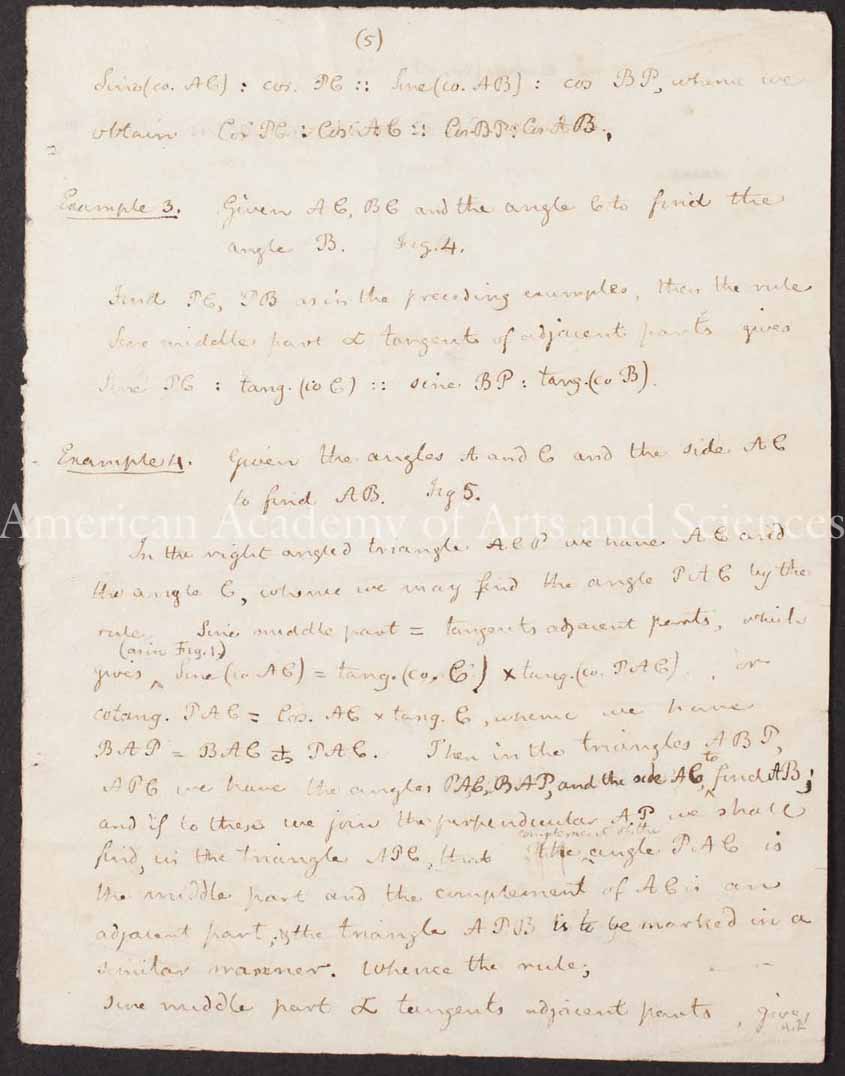 (5)
Sine (co. AC) : cos. PC :: Sine (co. AB) : cos BP, whence we
obtain Cos PC : Cos AC :: Cos BP : Cos AB.
Example 3. Given AC, BC and the angle C to find the
angle B. Fig. 4.
Find PC, PB as in the preceding examples, then the rule
Sine middle part ∝ tangents of adjacent parts gives
Sine PC : tang. (co C) :: sine BP : tang. (co B).
Example 4. Given the angles A and C and the side AC
to find AB. Fig 5.
American Academy of Arts and Sciences
In the right angled triangle ACP we have AC and
the angle C, whence we may find the angle PAC by the
rule Sine middle part = tangents adjacent parts, which
(as in Fig. 1.)
gives ‸ Sine (co AC) = tang. (co. C) × tang. (co. PAC), or
cotang. PAC = Cos. AC × tang. C, whence we have
BAP = BAC ± PAC. Then in the triangles ABP,
to
APC we have the angles PAC, BAP, and the side AC, ‸ find AB;
and if to these we join the perpendicular AP we shall
complement of the
find, in the triangle APC, that the ‸ angle PAC is
the middle part and the complement of AC is an
adjacent part, & the triangle APB is to be marked in a
similar manner. Whence the rule;
sine middle part ∝ tangents adjacent parts, gives